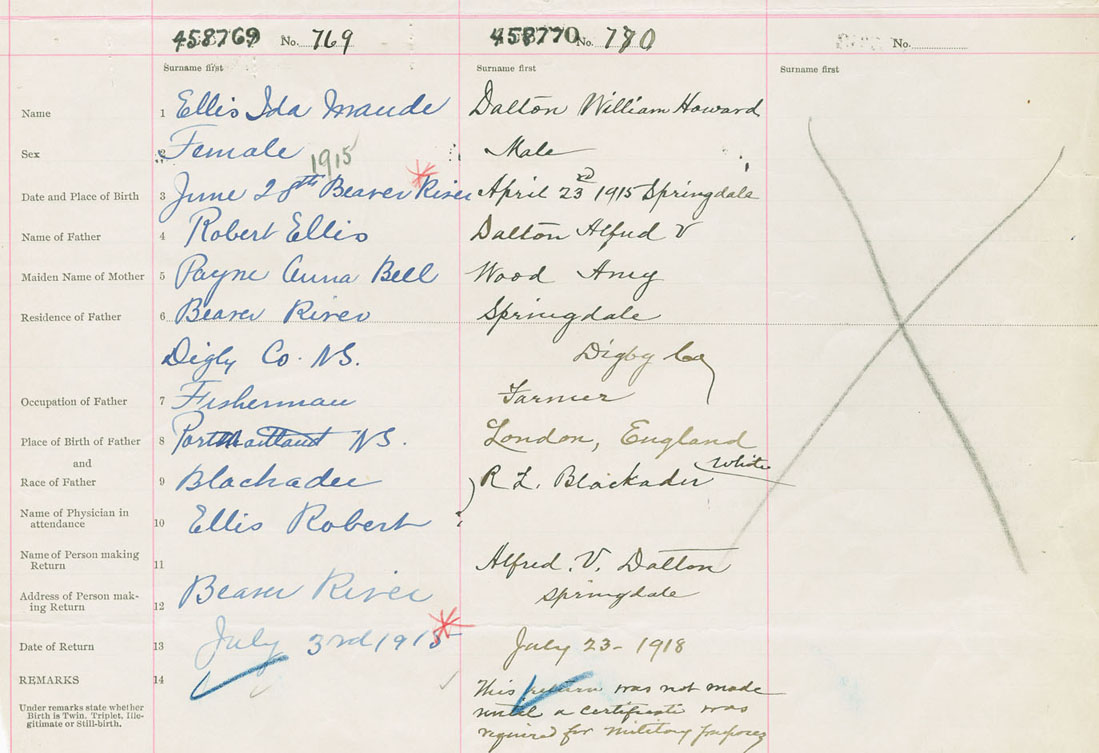 458769 No. 769
458770 No. 770
No.
Surname first
Surname first
Surname first
Name 1 Ellis Ida Maude
Dalton William Howard
Sex 2 Female
Male
1915
Date and Place of Birth 3 June 28th Beaver River
April 23rd 1915 Springdale
Name of Father 4 Robert Ellis
Dalton Alfred V
Maiden Name of Mother 5 Payne Anna Bell
Wood Amy
Residence of Father 6 Beaver River
Springdale
Digby Co. NS.
Digby Co
Occupation of Father 7 Fisherman
Farmer
Place of Birth of Father 8 Port Maitland NS.
London, England
and
White
Race of Father 9 Blackadee
R L. Blackader
Name of Physician in
attendance 10 Ellis Robert
Name of Person making
Return 11
Alfred. V. Dalton
Address of Person mak-
ing Return 12 Beaver River
Springdale
Date of Return 13 July 3rd 1915
July 23 - 1918
REMARKS 14
This return was not made
until a certificate was
required for military purposes
Under remarks state whether
Birth is Twin, Triplet, Ille-
gitimate or Still-birth.